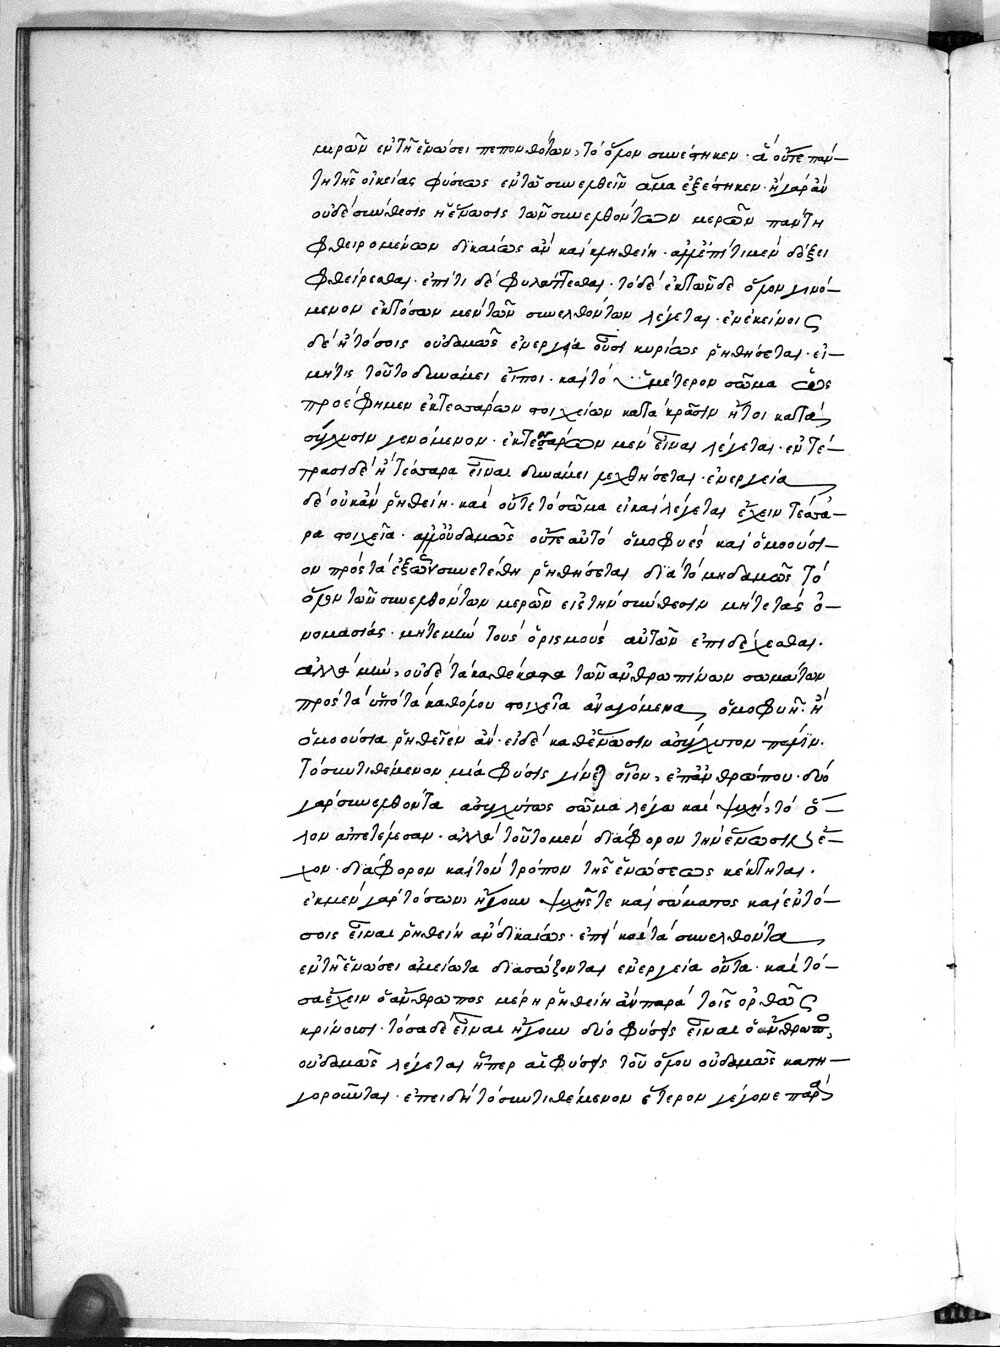 μερῶν ἐν τῆ ἑνώσει πεπονθότων, τὸ ὅλον συνέστηκεν· ἃ οὔτε παν-
τη τῆς οἰκείας φύσεως ἐν τῶ συνελθεῖν ἅμα ἐξέστηκεν· ἦ γὰρ ἂν
οὐδὲ σύνθεσις ἡ ἕνωσις τῶν συνελθόντων μερῶν πάντη
φθειρομένων δικαίως ἂν καὶ κληθείη· ἀλλ' ἐπί τι μὲν δόξει
φθείρεσθαι· ἐπί τι δὲ φυλάττεσθαι· τὸ δὲ ἐκ τῶνδε ὅλον γινό-
μενον ἐκ τόσων μὲν τῶν συνελθόντων λέγεται· ἐν ἐκείνοις
δὲ ἢ τόσοις οὐδαμῶς ἐνεργεία οὖσι κυρίως ῥηθήσεται· εἰ
μή τις τοῦτο δυνάμει εἴποι· καὶ τὸ ἡμέτερον σῶμα ὥς
προέφημεν ἐκ τεσσάρων στοιχείων κατὰ κρᾶσιν ἤτοι κατὰ
σύγχυσιν γενόμενον· ἐκ τεσσάρων μὲν εἶναι λέγεται· ἐν τέ-
τρασι δὲ ἢ τέσσαρα εἶναι δυνάμει λεχθήσεται· ἐνεργεία
δὲ οὐκ ἂν ῥηθείη· καὶ οὔτε τὸ σῶμα εἰ καὶ λέγεται ἔχειν τέσσα-
ρα στοιχεῖα· ἀλλ' οὐδαμῶς οὔτε αὐτὸ ὁμοφυὲς καὶ ὁμοούσι-
ον πρὸς τὰ ἐξ ὧν συνετέθη ῥηθήσεται διὰ τὸ μηδαμῶς τὸ
ὅλον τῶν συνελθόντων μερῶν εἰς τὴν σύνθεσιν μήτε τὰς ὀ-
νομασίας· μήτε μὴν τοὺς ὁρισμοὺς αὐτῶν ἐπιδέχεσθαι·
ἀλλὰ μὴν, οὐδὲ τὰ καθέκαστα τῶν ἀνθρωπίνων σωμάτων
πρὸς τὰ ὑπὸ τὰ καθόλου στοιχεῖα ἀναγόμενα, ὁμοφυῆ· ἢ
ὁμοούσια ῥηθεῖεν ἄν· εἰ δὲ καθ' ἕνωσιν ἀσύγχυτον πάλιν·
τὸ συντιθέμενον μία φύσις γίνεται οἷον, ἐπ' ἀνθρώπου· δύο
γὰρ συνελθόντα ἀσυγχύτως σῶμα λέγω καὶ ψυχὴ, τὸ ὅ-
λον ἀπετέλεσαν· ἀλλὰ τοῦτο μὲν διάφορον τὴν ἕνωσιν ἔ-
χον· διάφορον καὶ τὸν τρόπον τῆς ἑνώσεως κέκτηται·
ἐκ μὲν γὰρ τόσων, ἤγουν ψυχῆς τε καὶ σώματος καὶ ἐν τό-
σοις εἶναι ῥηθείη ἂν δικαίως· ἐπεὶ καὶ τὰ συνελθόντα
ἐν τῆ ἑνώσει ἀμείωτα διασώζονται ἐνεργεία ὄντα· καὶ τό-
σα ἔχειν ὁ ἄνθρωπος μέρη ῥηθείη ἂν παρὰ τοῖς ὀρθῶς
κρίνουσι· τόσα δὲ εἶναι ἤγουν δύο φύσεις εἶναι ὁ ἄνθρωπος,
οὐδαμῶς λέγεται ἥπερ αἱ φύσεις τοῦ ὅλου οὐδαμῶς κατη-
γοροῦνται· ἐπειδὴ τὸ συντιθέμενον ἕτερον γέγονε παρὰ